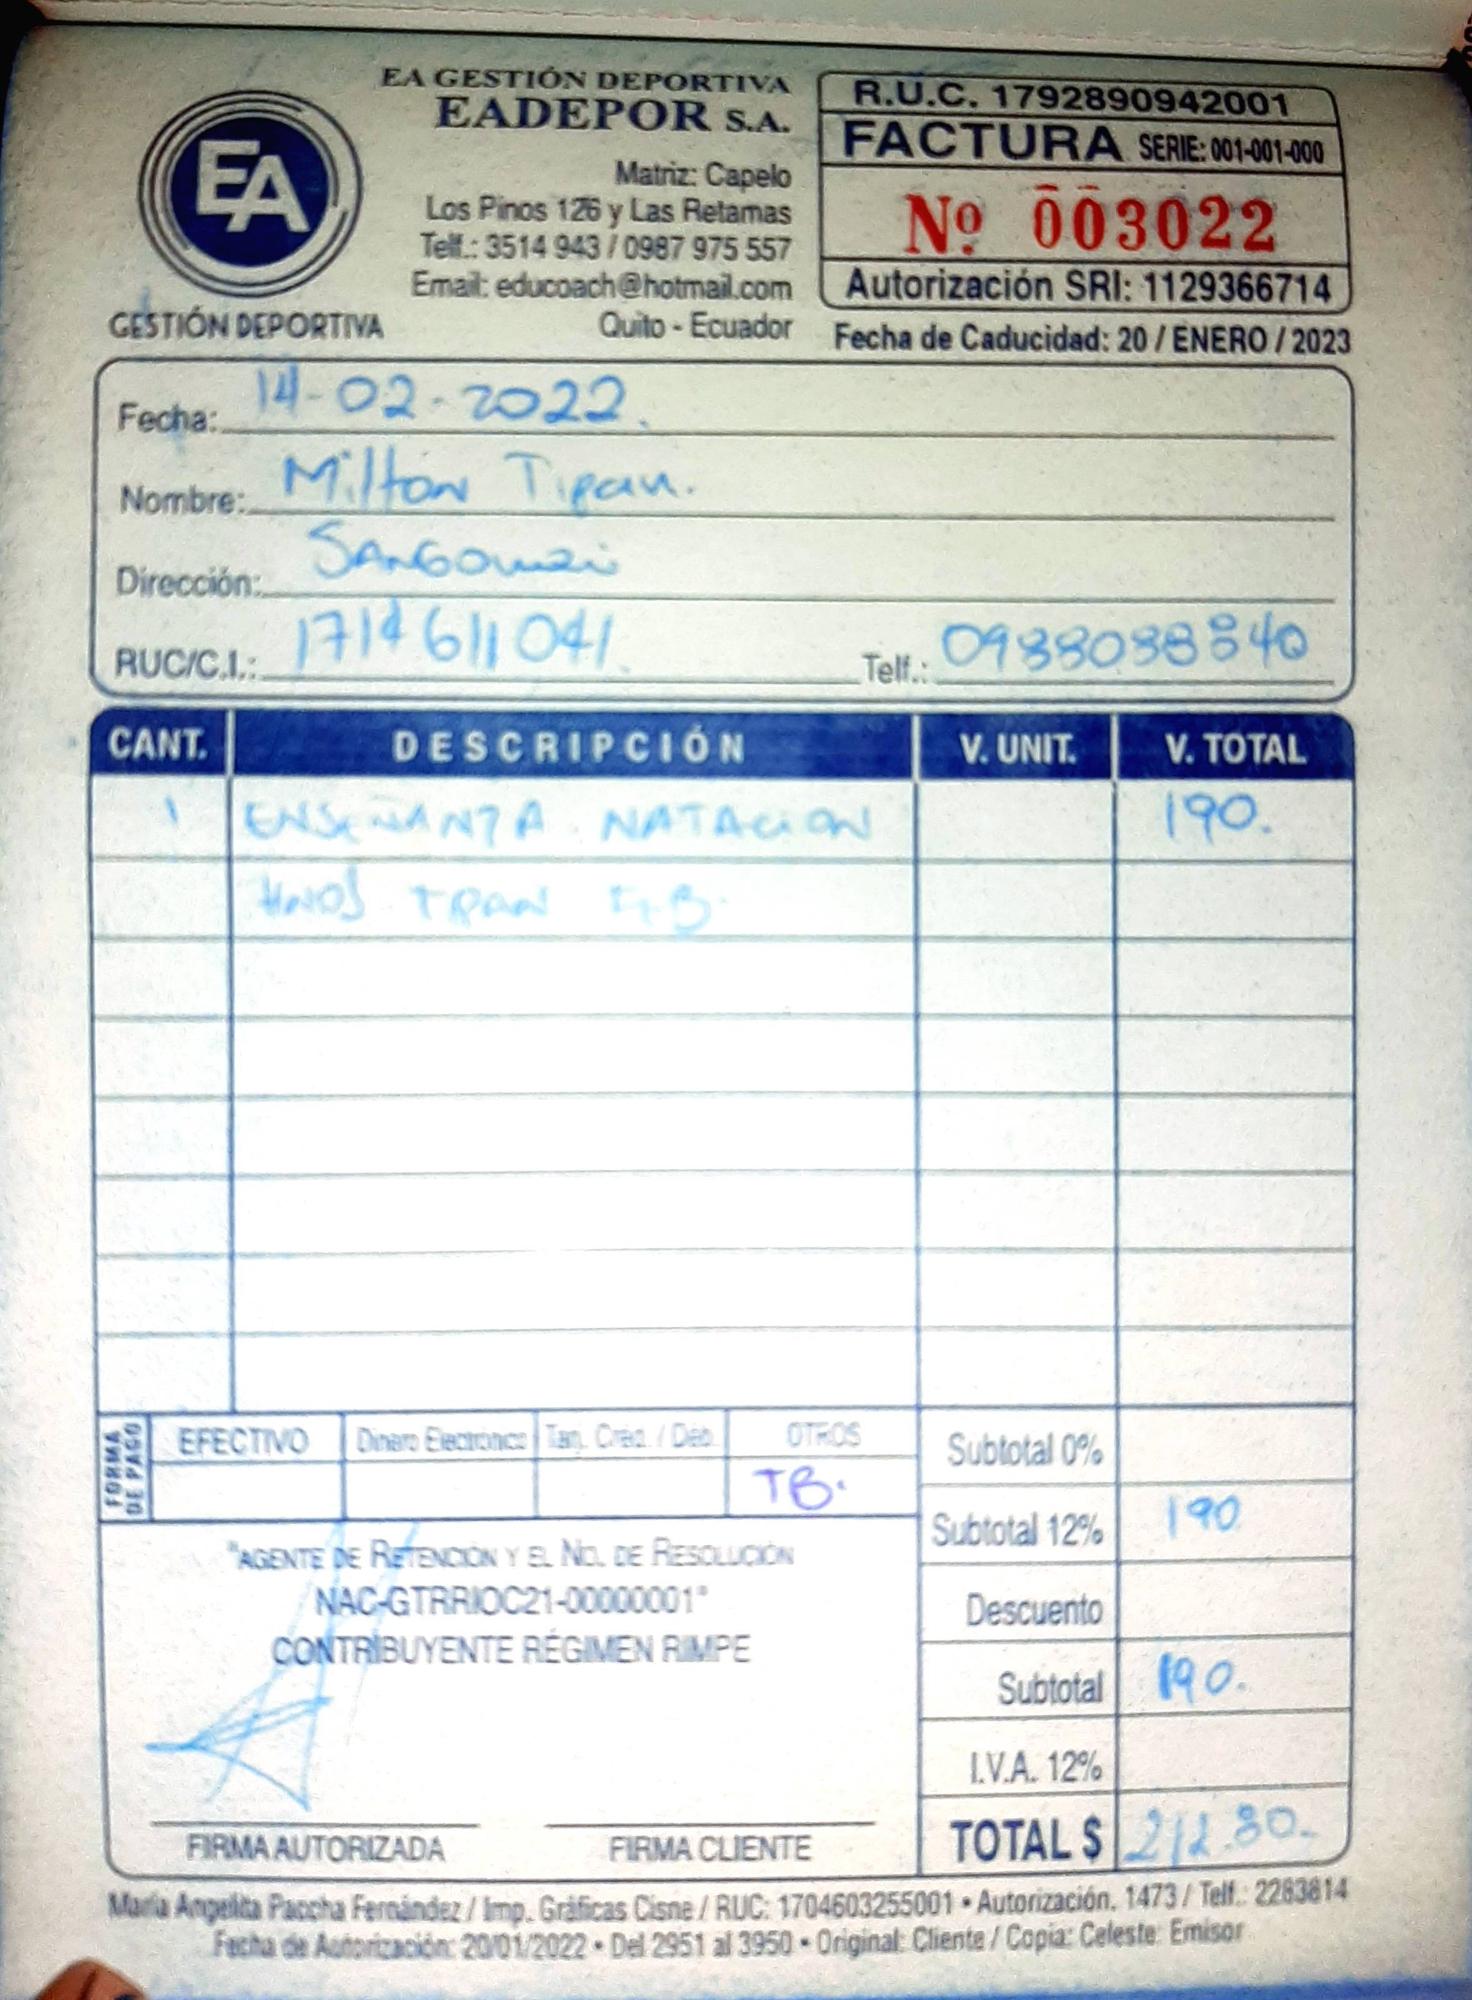 EA GESTIÓN DEPORTIVA
EADEPOR S.A.
EA
GESTIÓN DEPORTIVA
Matriz: Capelo
Los Pinos 126 y Las Retamas
Telf.: 3514 943 / 0987 975 557
Email: educoach@hotmail.com
Quito - Ecuador
R.U.C. 1792890942001
FACTURA SERIE: 001-001-000
Nº 003022
Autorización SRI: 1129366714
Fecha de Caducidad: 20 / ENERO / 2023
Fecha: 14-02-2022.
Nombre: Milton Tipan.
Dirección:
RUC/C.I.: 1714611041. Telf.:
CANT. DESCRIPCIÓN V. UNIT. V. TOTAL
1 ENSEÑANZA NATACION 190.
HNOS
FORMA DE PAGO
EFECTIVO Dinero Electrónico Tarj. Créd. / Déb. OTROS
TB.
Subtotal 0%
Subtotal 12% 190
Descuento
Subtotal 190.
I.V.A. 12%
TOTAL $ 212.80.
"AGENTE DE RETENCIÓN Y EL NO. DE RESOLUCIÓN
NAC-GTRRIOC21-00000001"
CONTRIBUYENTE RÉGIMEN RIMPE
FIRMA AUTORIZADA FIRMA CLIENTE
María Angelita Paccha Fernández / Imp. Gráficas Cisne / RUC: 1704603255001 • Autorización. 1473 / Telf.: 2283814
Fecha de Autorización: 20/01/2022 • Del 2951 al 3950 • Original: Cliente / Copia: Celeste: Emisor